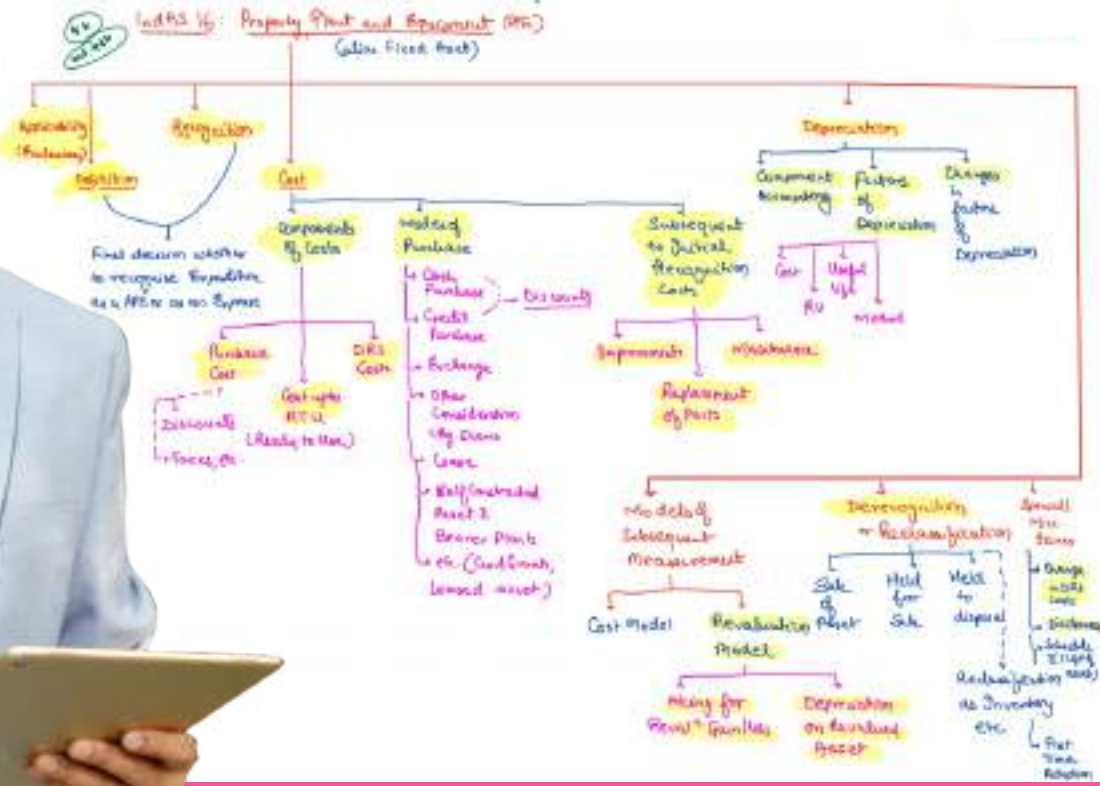 IndAS 16: Property Plant and Equipment (PPE)
(alias Fixed Asset)
Applicability
Definition
Recognition
Final decision whether
to recognise Expenditure
as a PPE or as an Expense
Cost
Components
of Costs
Purchase
Cost
Discounts
Taxes, etc.
Cost upto
RTU
(Ready to Use)
DRS
Costs
Modes of
Purchase
Cash
Purchase
Credit
Purchase
Discounts
Exchange
Other
Consideration
Lease
Self Constructed
Asset &
Bearer Plants
Subsequent
to Initial
Recognition
Costs
Improvements
Replacement
of Parts
Maintenance
Depreciation
Component
Accounting
Factors
of
Depreciation
Cost
RV
Useful
Life
Method
Changes
in
factors
of
Depreciation
Models of
Subsequent
Measurement
Cost Model
Revaluation
Model
Depreciation
on Revalued
Asset
Derecognition
or Reclassification
Sale
of
Asset
Held
for
Sale
Held
to
disposal
Reclassification
as Inventory
etc.
Change
Disclosures
First
Time
Adoption